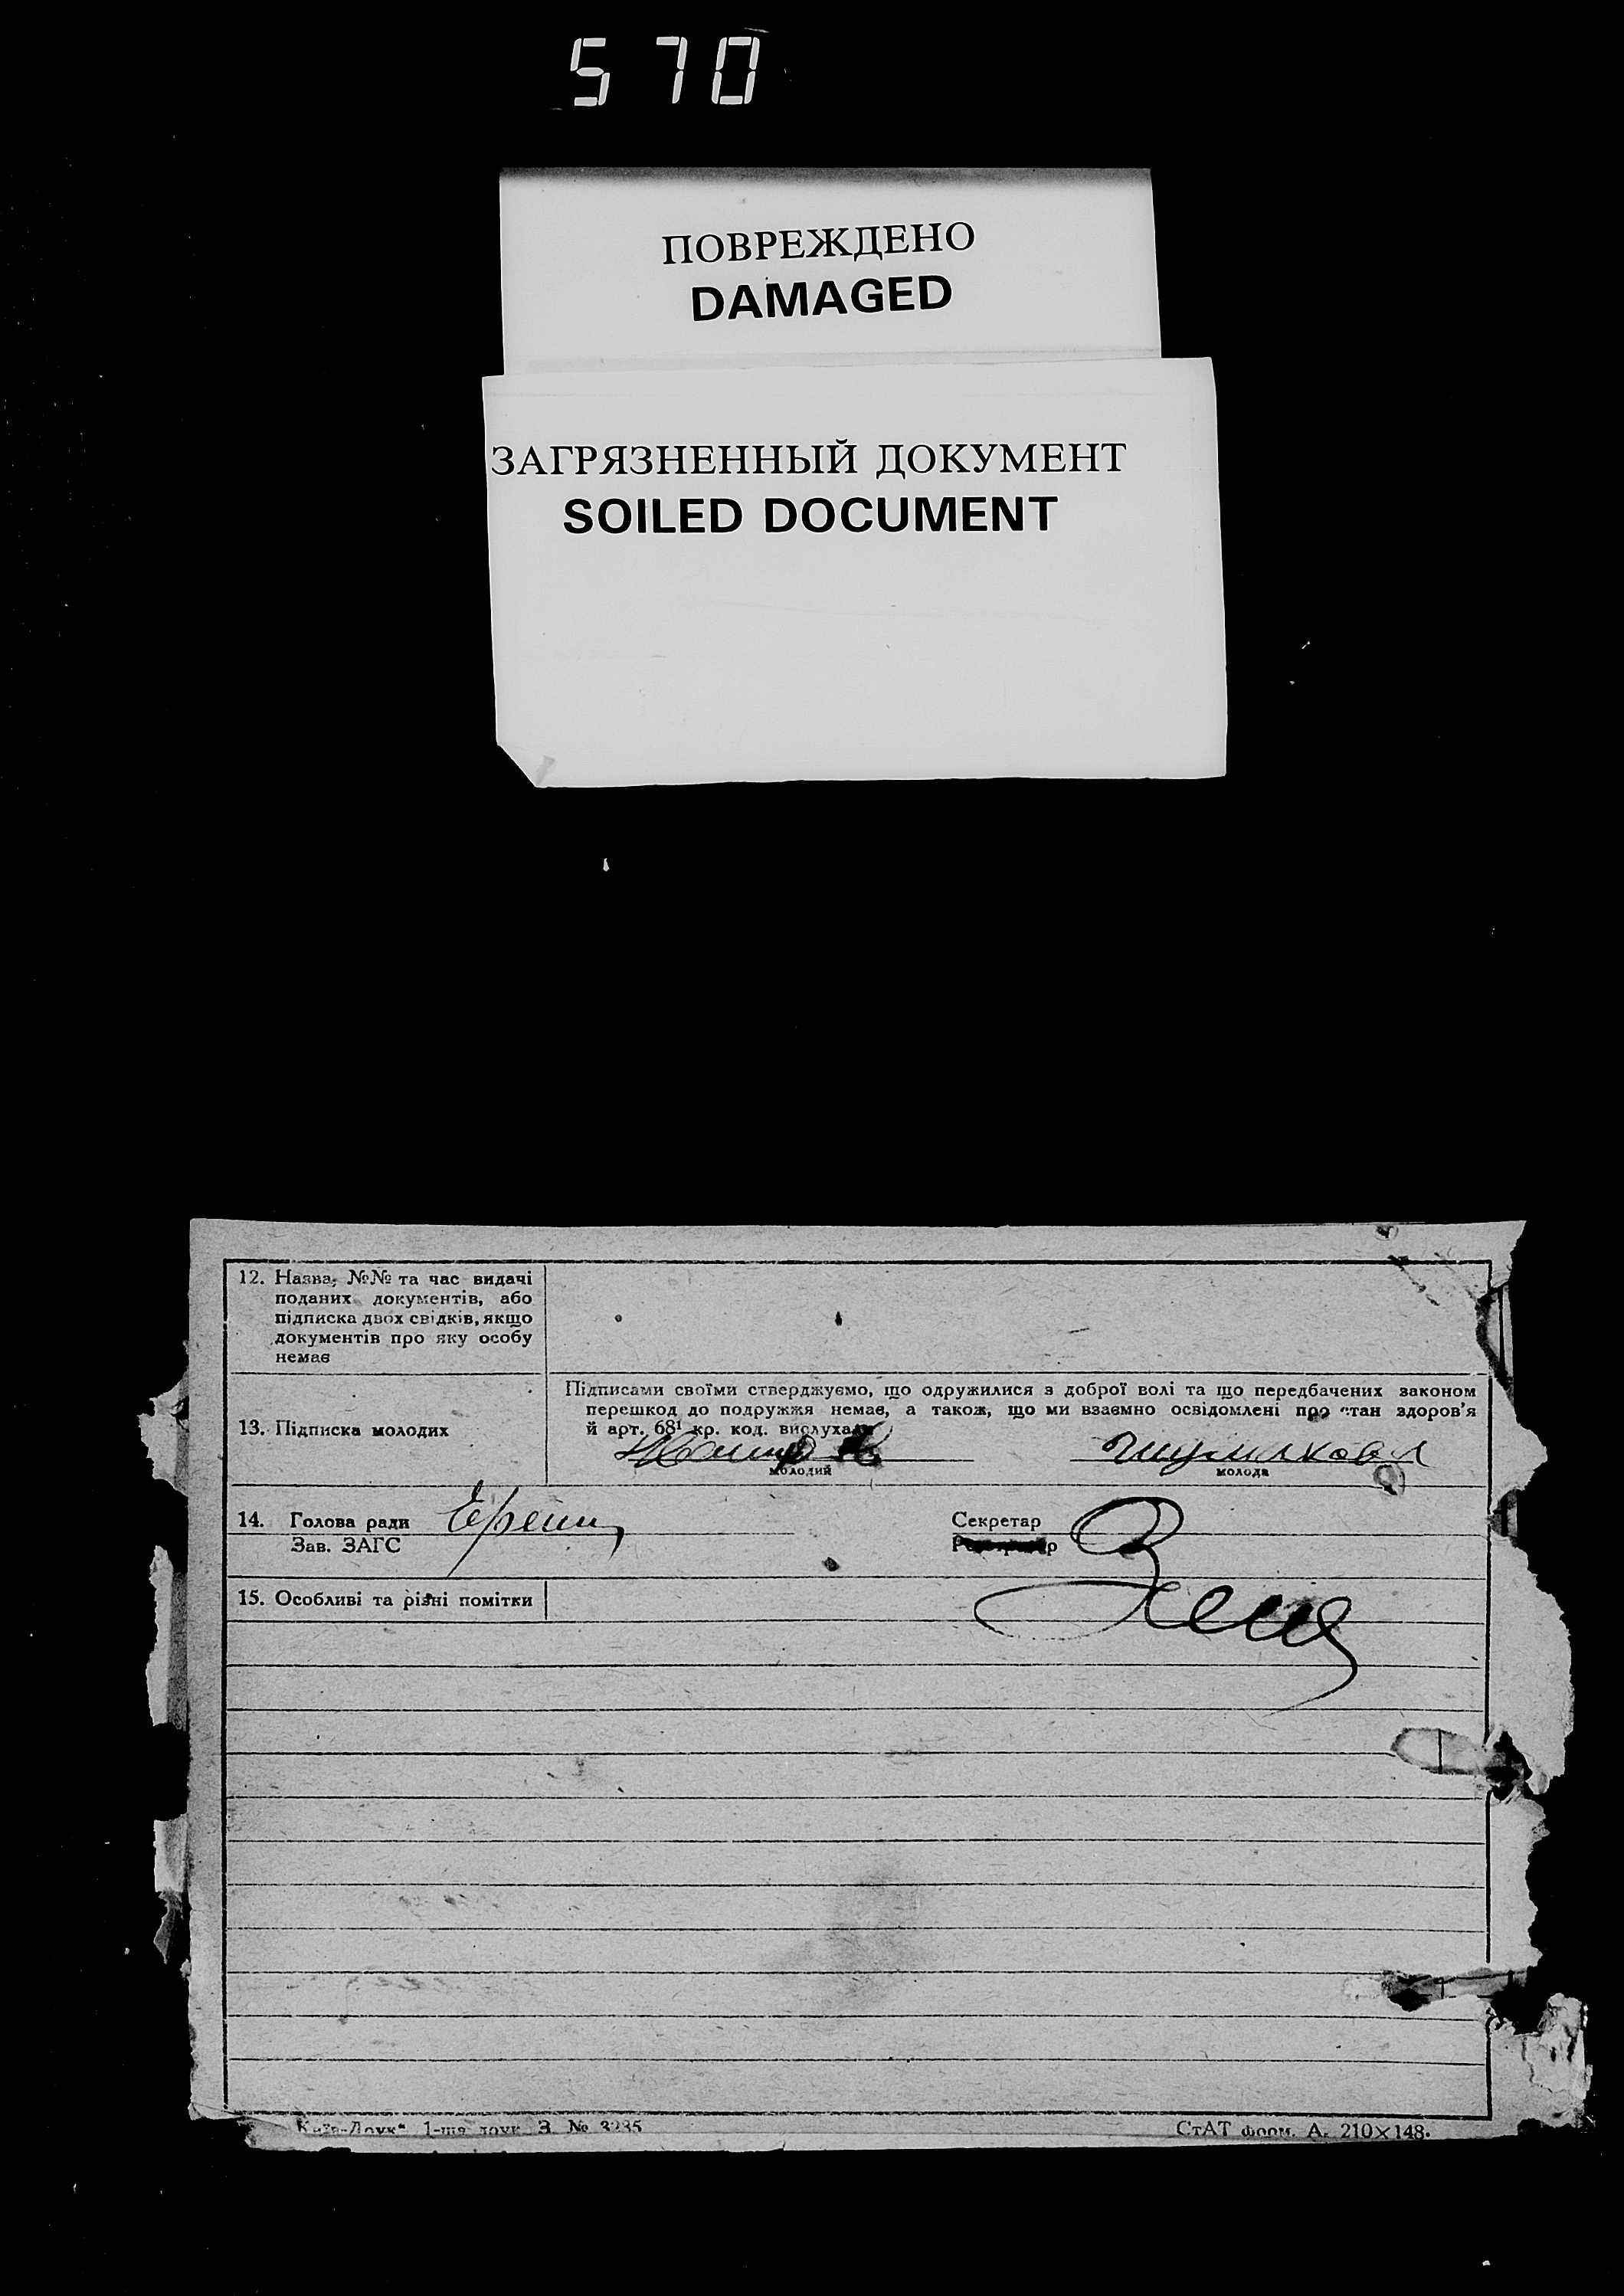 570
ПОВРЕЖДЕНО
DAMAGED
ЗАГРЯЗНЕННЫЙ ДОКУМЕНТ
SOILED DOCUMENT
12. Назва, №№ та час видачі
поданих документів, або
підписка двох свідків, якщо
документів про яку особу
немає
13. Підписка молодих
Підписами своїми стверджуємо, що одружилися з доброї волі та що передбачених законом
перешкод до подружжя немає, а також, що ми взаємно освідомлені про стан здоров'я
й арт. 68¹ кр. код. вислухали
молодий
молода
14. Голова ради
Зав. ЗАГС
Секретар
15. Особливі та різні помітки
Київ-Друк" 1-ша друк. З. №
СтАТ форм. А. 210×148.